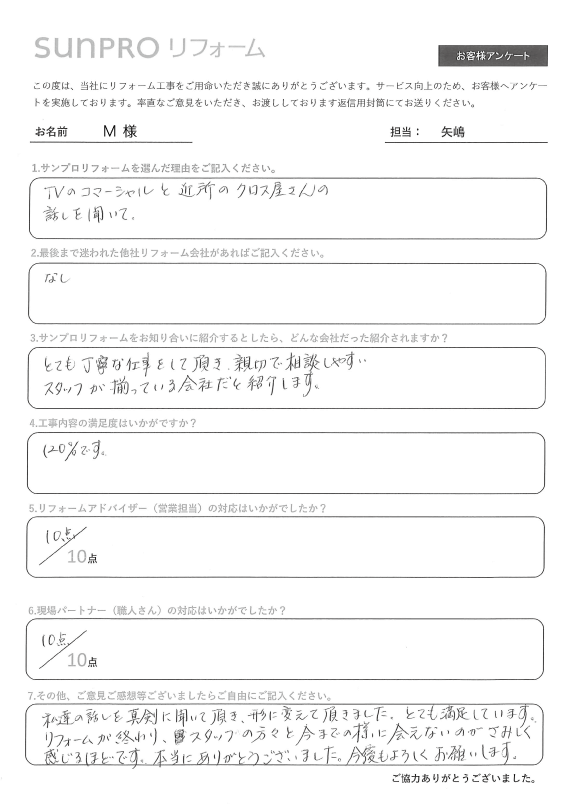 SUNPRO リフォーム
お客様アンケート
この度は、当社にリフォーム工事をご用命いただき誠にありがとうございます。サービス向上のため、お客様へアンケー
トを実施しております。率直なご意見をいただき、お渡ししております返信用封筒にてお送りください。
お名前 M 様 担当: 矢嶋
1.サンプロリフォームを選んだ理由をご記入ください。
TVのコマーシャルと近所のクロス屋さんの
話しを聞いて。
2.最後まで迷われた他社リフォーム会社があればご記入ください。
なし
3.サンプロリフォームをお知り合いに紹介するとしたら、どんな会社だった紹介されますか?
とても丁寧な仕事をして頂き、親切で相談しやすい
スタッフが揃っている会社だと紹介します。
4.工事内容の満足度はいかがですか?
120%です。
5.リフォームアドバイザー(営業担当)の対応はいかがでしたか?
10点/
10点
6.現場パートナー(職人さん)の対応はいかがでしたか?
10点/
10点
7.その他、ご意見ご感想等ございましたらご自由にご記入ください。
私達の話しを真剣に聞いて頂き、形に変えて頂きました。とても満足しています。
リフォームが終わり、スタッフの方々と今までの様に会えないのがさみしく
感じるほどです。本当にありがとうございました。今後もよろしくお願いします。
ご協力ありがとうございました。